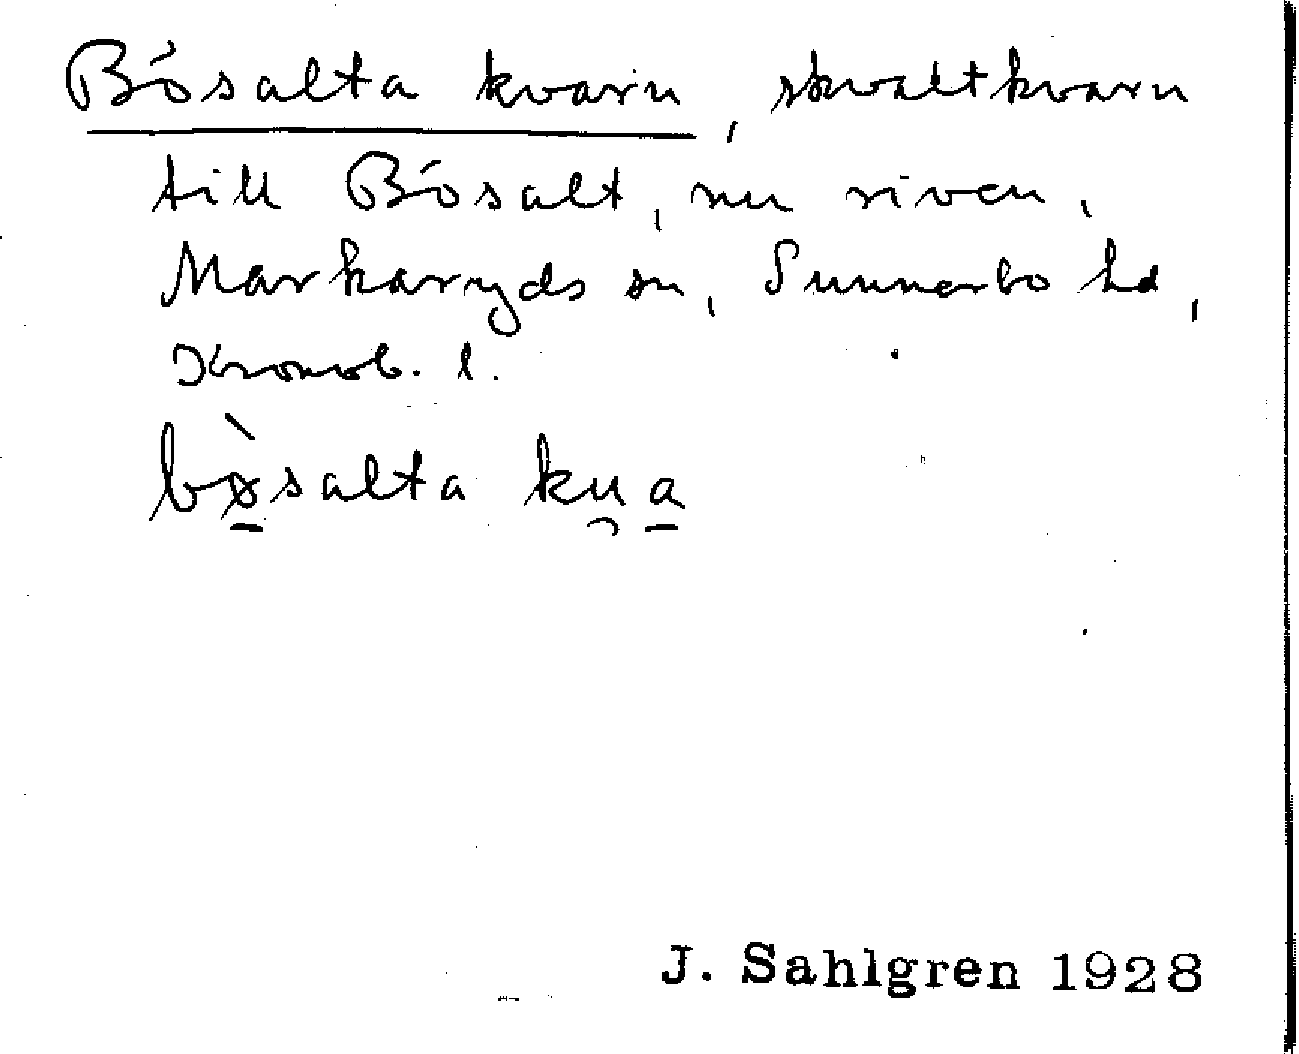 Bösalta kvarn, skvaltkvarn
till Bösalt, nu riven,
Markaryds sn, Sunnerbo hd,
Kronob. l.
bø̱̀salta ku̯a̱
J. Sahlgren 1928